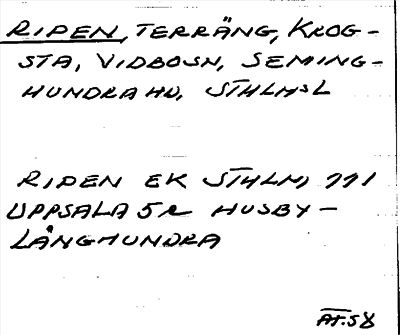 RIPEN, TERRÄNG, KROG-
STA, VIDBOSN, SEMING-
HUNDRA HD, STHLMSL
RIPEN EK STHLM, 111
UPPSALA 5 R HUSBY-
LÅNGHUNDRA
AT.58